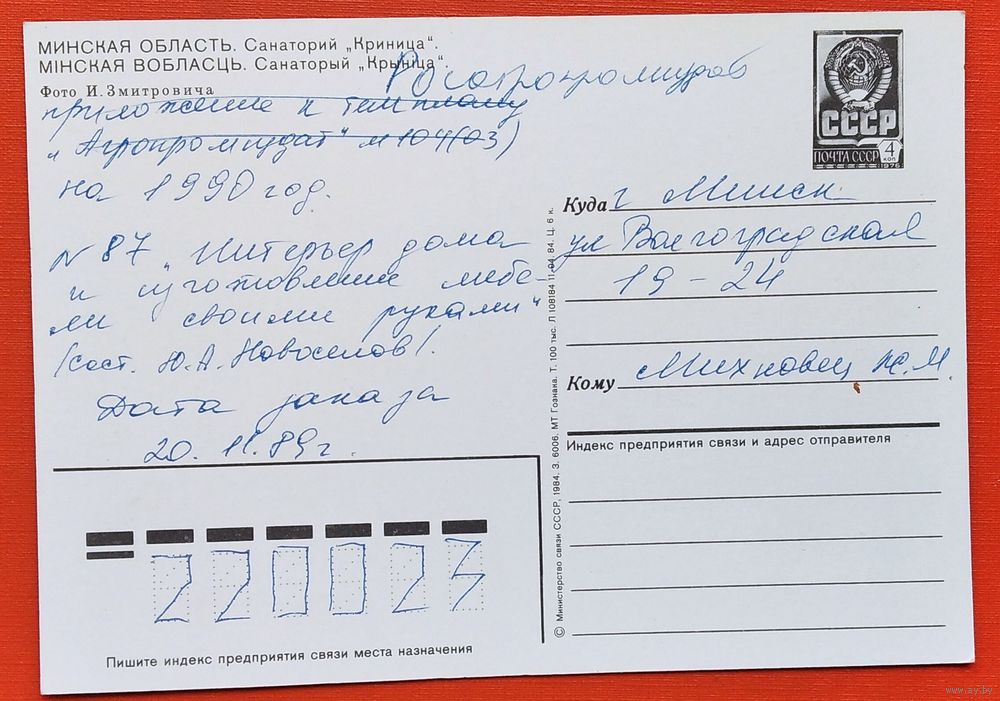 МИНСКАЯ ОБЛАСТЬ. Санаторий „Криница“.
МІНСКАЯ ВОБЛАСЦЬ. Санаторый „Крыніца“.
Фото И. Змитровича
Росагропромиздат
приложение к темплану
„Агропромиздат" и 104(03)
на 1990 год.
№ 87 „Интерьер дома
и изготовление мебе-
ли своими руками"
(сост. Ю.А. Новоселов).
Дата заказа
20.11.89г.
220023
Пишите индекс предприятия связи места назначения
© Министерство связи СССР, 1984. З. 6006. МТ Гознака. Т. 100 тыс. Л 108184 11.04.84. Ц. 6 к.
СССР
ПОЧТА СССР
4
КОП
1976
Куда г Минск
ул Волгоградская
19-24
Кому Михновец Ж.М.
Индекс предприятия связи и адрес отправителя
www.ay.by